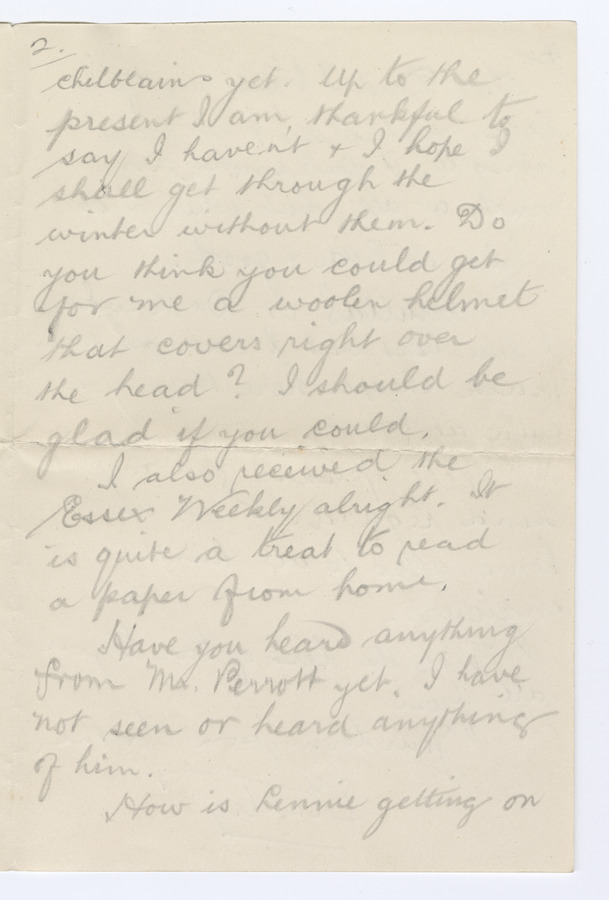 2.
chilblains yet. Up to the
present I am, thankful to
say I haven't + I hope I
shall get through the
winter without them. Do
you think you could get
for me a woolen helmet
that covers right over
the head? I should be
glad if you could.
I also received the
Essex Weekly alright. It
is quite a treat to read
a paper from home.
Have you heard anything
from Mr. Perrott yet. I have
not seen or heard anything
of him.
How is Lennie getting on